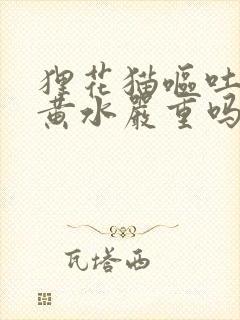 狸花猫呕吐
黄水严重吗
瓦塔西